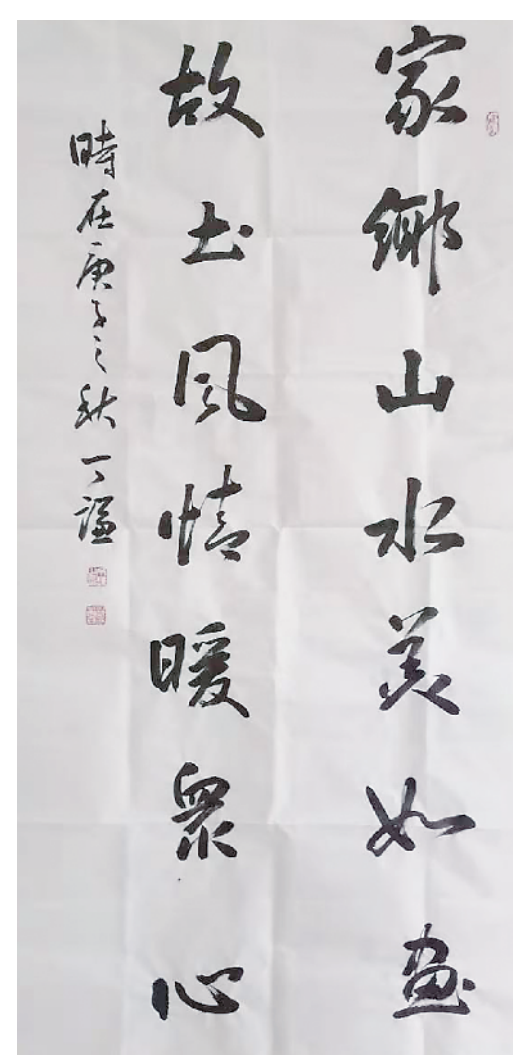 家鄉山水美如画
故土風情暖衆心
時在庚子之秋丁謙